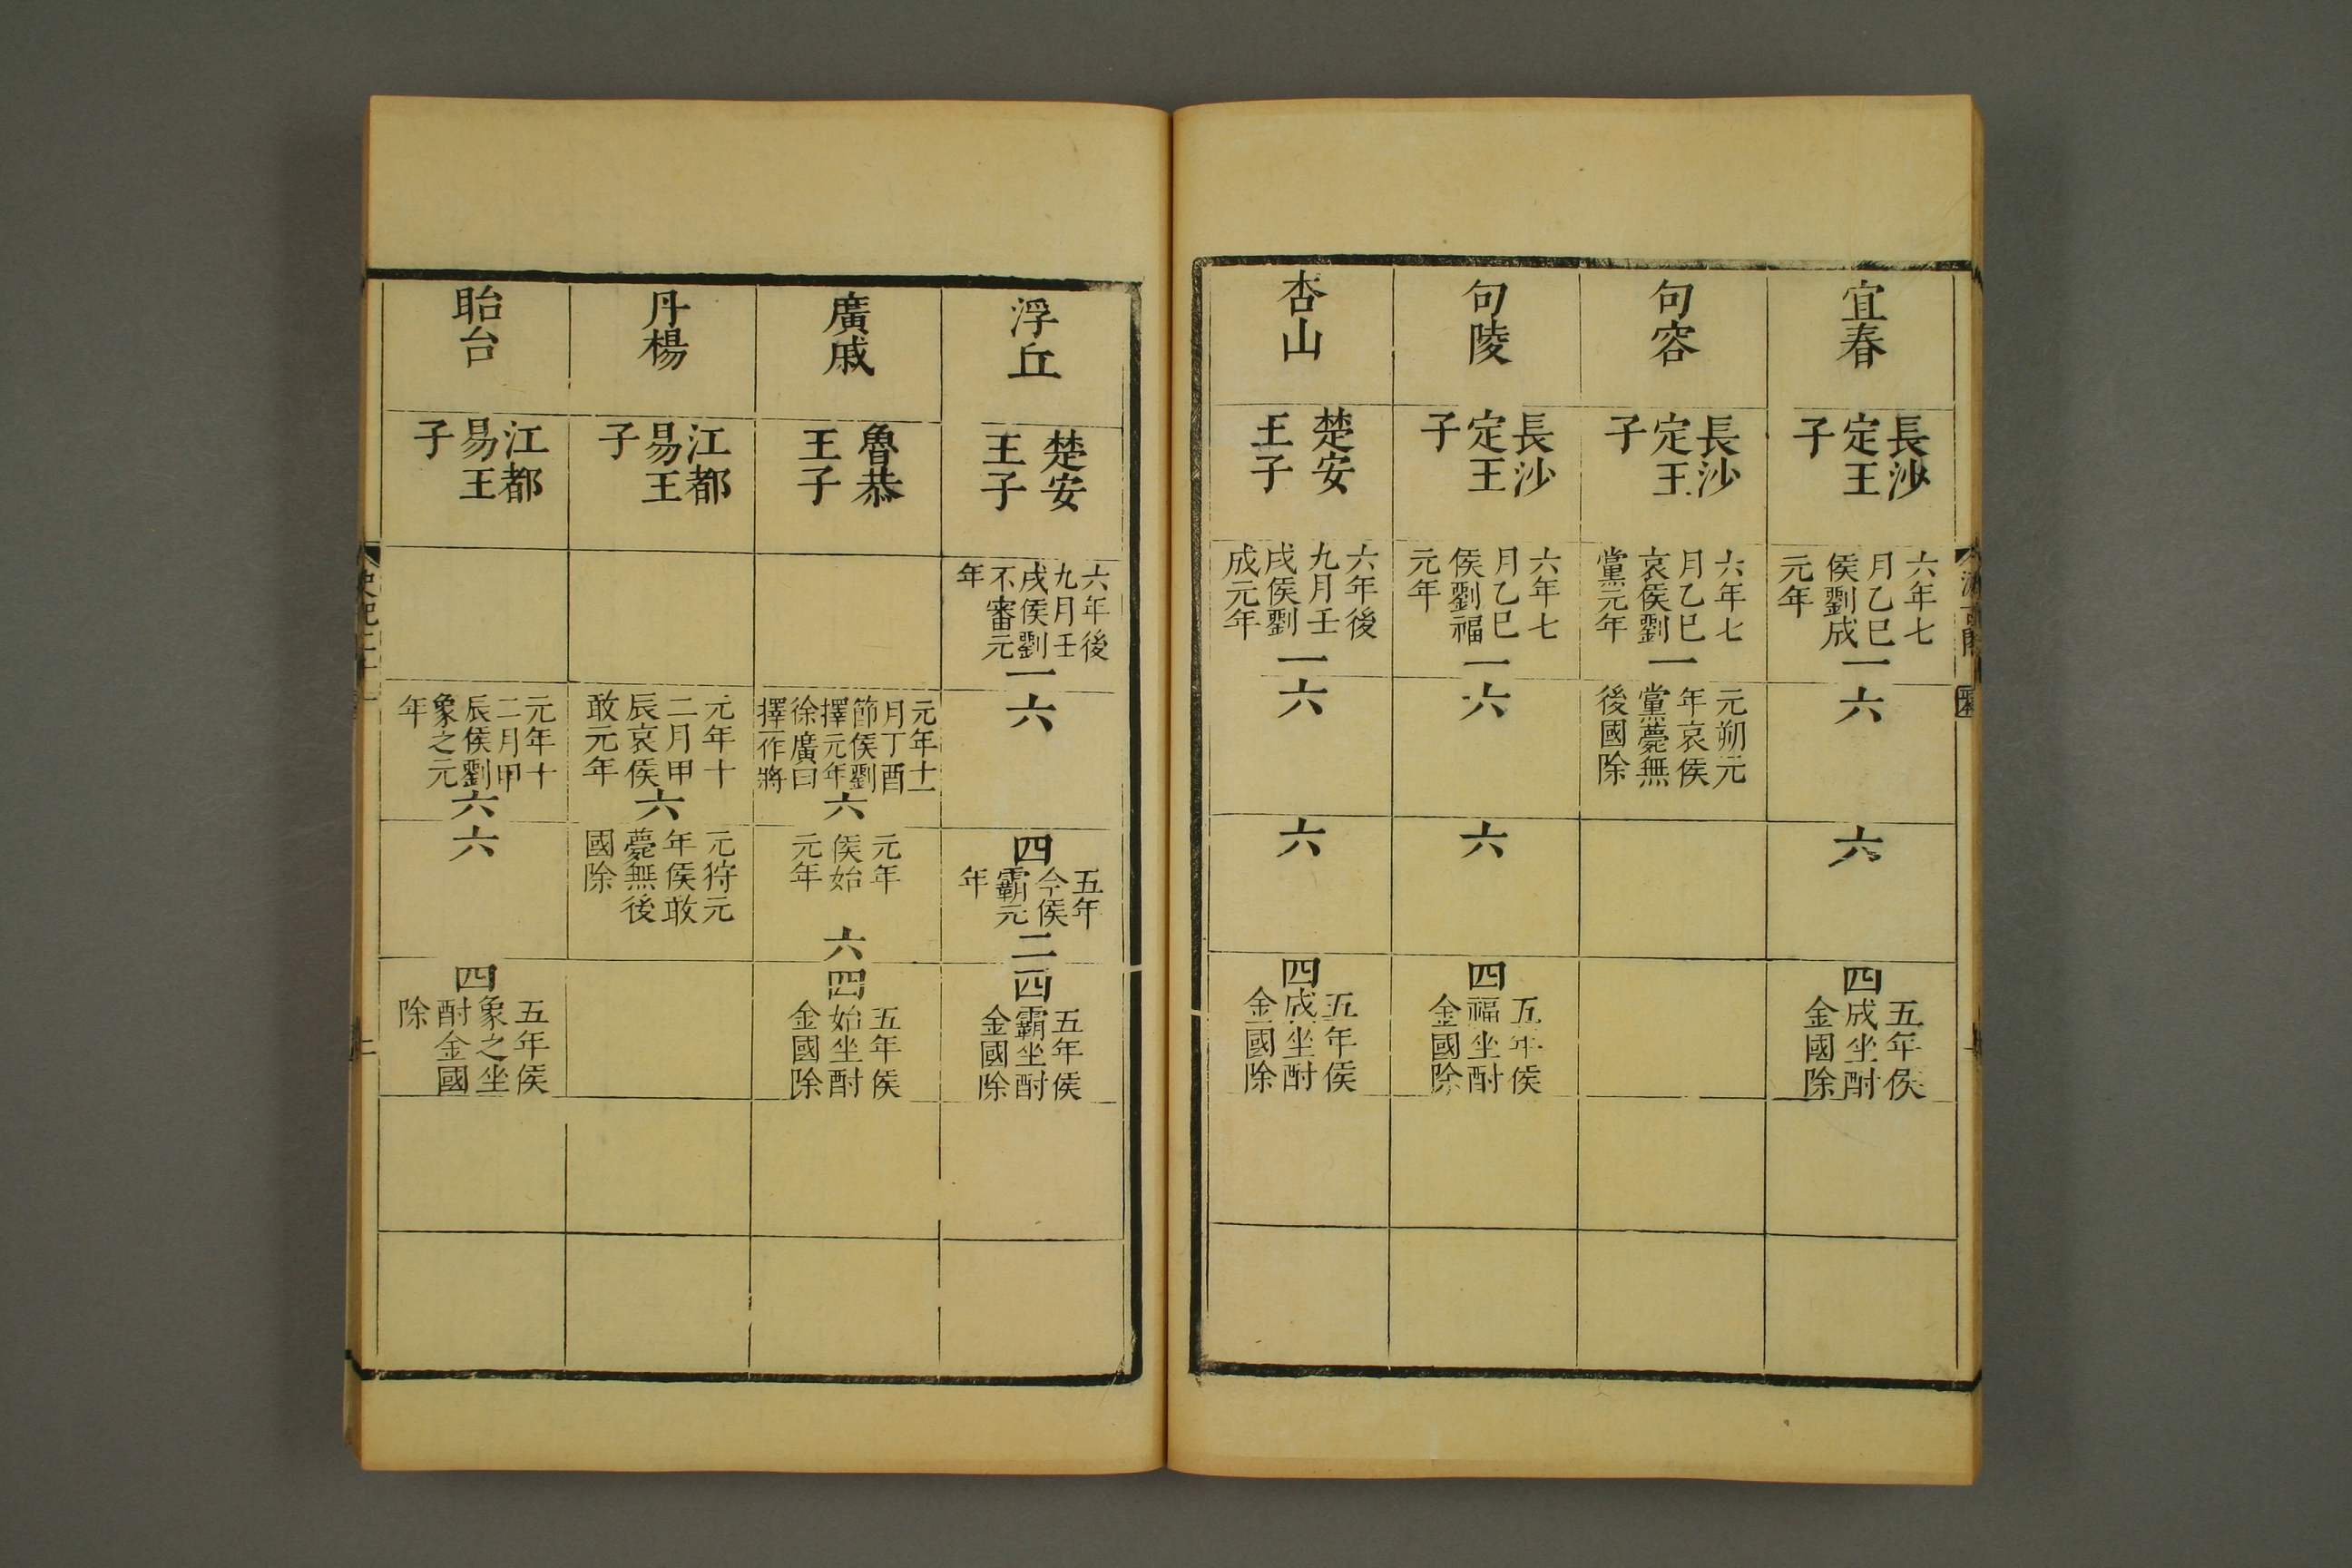 宜春
長沙
定王
子
六年七
月乙巳
侯劉成
元年
一
六
六
四
五年侯
成坐酎
金國除
句容
長沙
定王
子
六年七
月乙巳
哀侯劉
黨元年
一
元朔元
年哀侯
黨薨無
後國除
句陵
長沙
定王
子
六年七
月乙巳
侯劉福
元年
一
六
六
四
五年侯
福坐酎
金國除
杏山
楚安
王子
六年後
九月壬
戌侯劉
成元年
一
六
六
四
五年侯
成坐酎
金國除
浮丘
楚安
王子
六年後
九月壬
戌侯劉
不審元
年
一
六
四
五年
今侯
霸元
年
二
四
五年侯
霸坐酎
金國除
廣戚
魯恭
王子
元年十一
月丁酉
節侯劉
擇元年
徐廣曰
擇一作將
六
元年
侯始
元年
六
四
五年侯
始坐酎
金國除
丹楊
江都
易王
子
元年十
二月甲
辰哀侯
敢元年
六
元狩元
年侯敢
薨無後
國除
盱台
江都
易王
子
元年十
二月甲
辰侯劉
象之元
年
六
六
四
五年侯
象之坐
酎金國
除